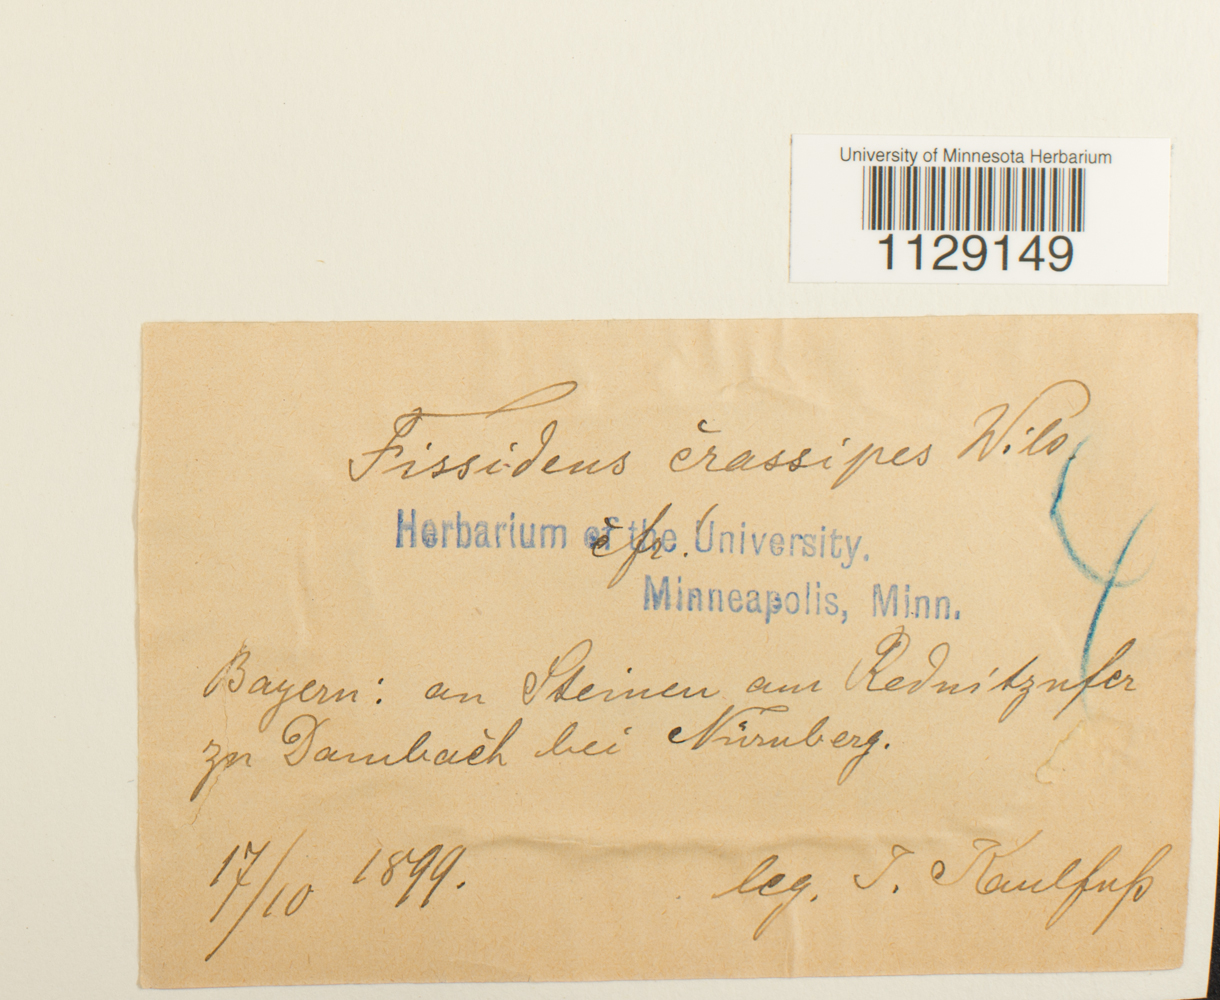 University of Minnesota Herbarium
1129149
Fissidens crassipes Wils.
c. fr.!
Herbarium of the University.
Minneapolis, Minn.
4
Bayern: an Steinen am Rednitzufer
zu Dambach bei Nürnberg.
17/10 1899.
leg. J. Kaulfuß